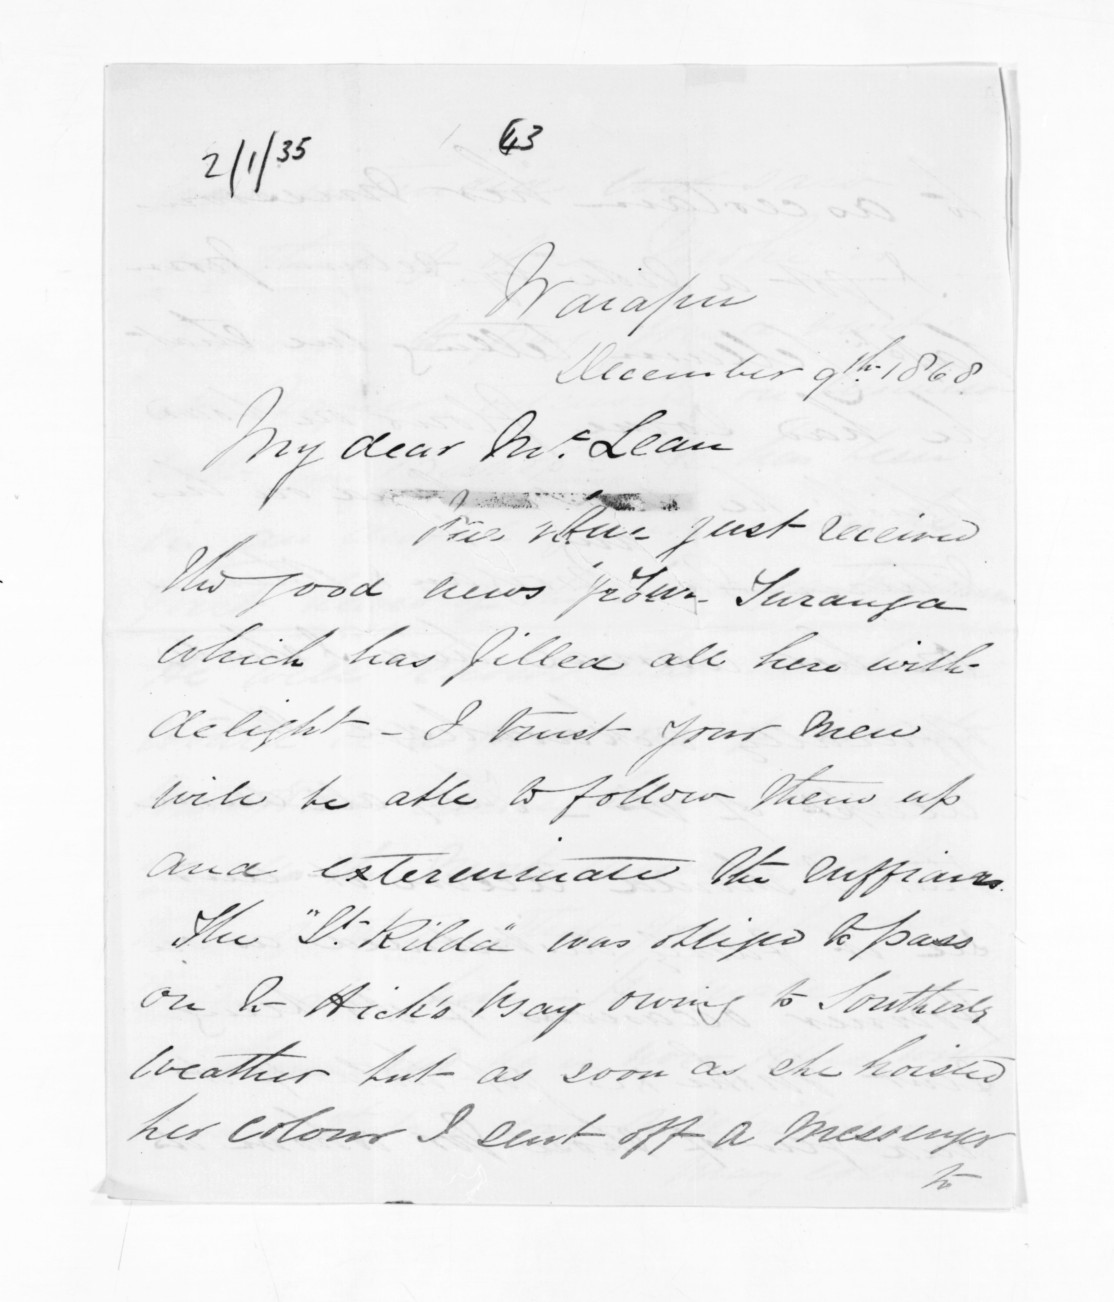 2/1/35
43
Waiapu
December 9th. 1868
My dear Mc. Lean
We have just received
the good news from Turanga
which has filled all here with
delight - I trust your men
will be able to follow them up
and exterminate the ruffians.
The "St. Kilda" was obliged to pass
on to Hick's Bay owing to Southerly
weather but as soon as she hoisted
her colour I sent off a messenger
to